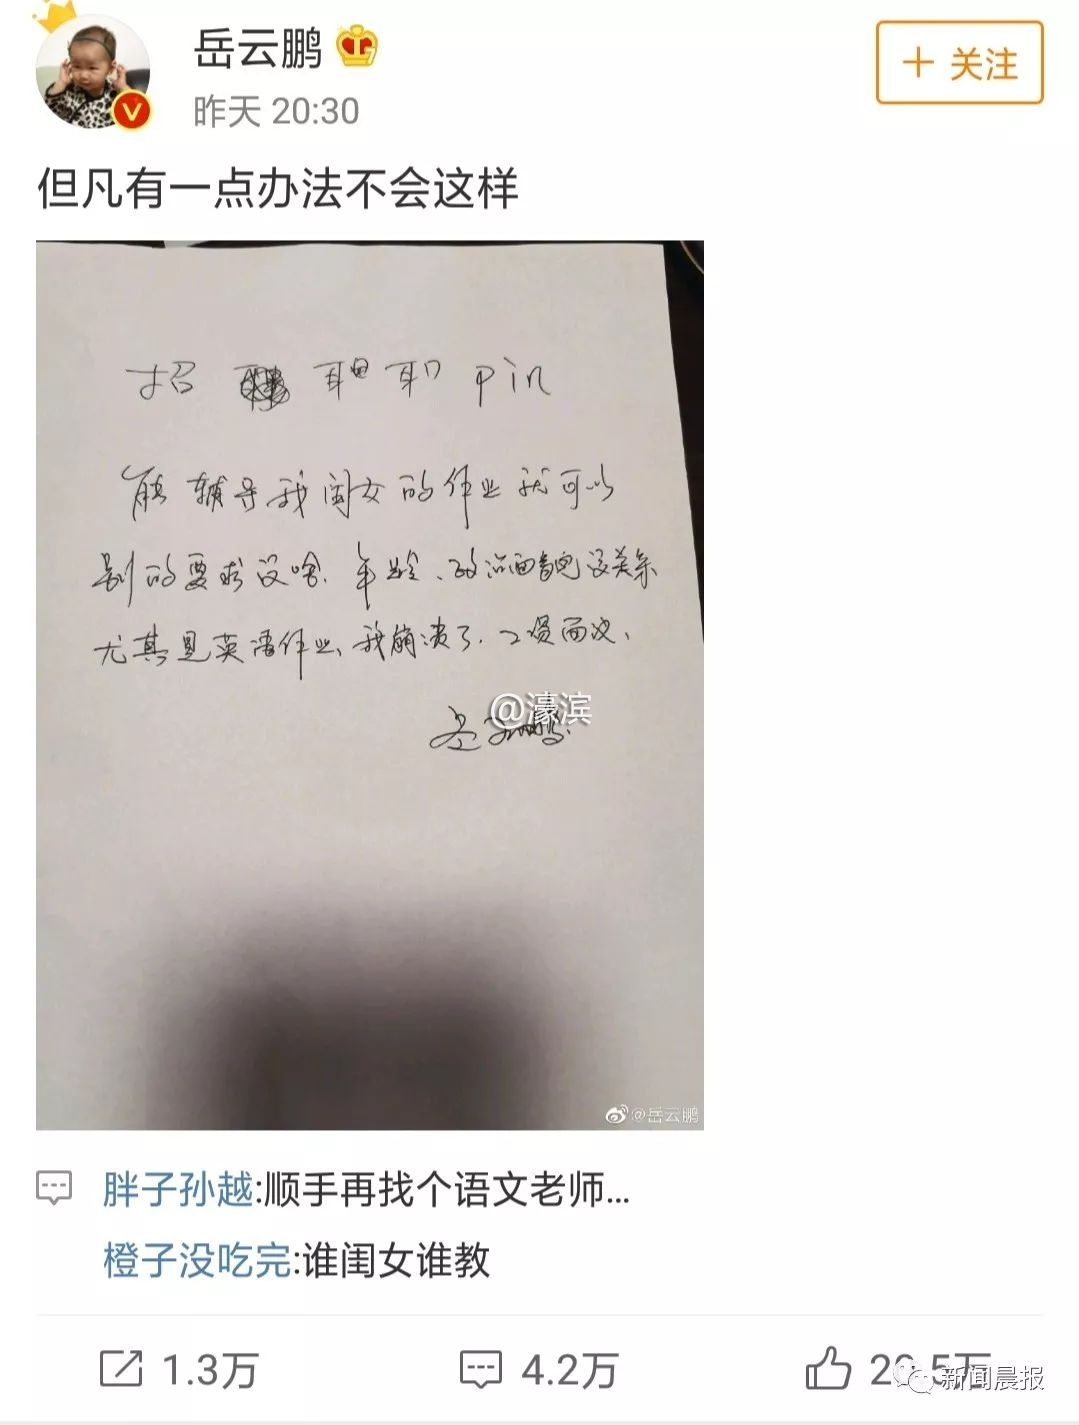 岳云鹏
昨天 20:30
+ 关注
但凡有一点办法不会这样
招 耶 职 pin
能辅导我闺女的作业就可以
别的要求没啥.年龄、政治面貌没关系
尤其是英语作业、我崩溃了.工资面议、
@濠滨
岳云鹏
@岳云鹏
胖子孙越:顺手再找个语文老师...
橙子没吃完:谁闺女谁教
1.3万
4.2万
新闻晨报